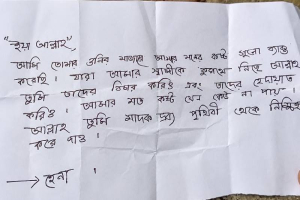 "ইয়া আল্লাহ",
আমি তোমার গুনির মাজারে আমার মনের কষ্ট গুলো ব্যক্ত
করেছি। যারা আমার স্বামীকে নিছে আল্লাহ
তুমি তাদের বিচার করিও এবং তাদের হেদায়াত
করিও। আমার মত কষ্ট যেন কেউ না পায়।
আল্লাহ তুমি মাদক দ্রব্য পৃথিবী থেকে নিশ্চিহ্ন
করে দাও।
→ হেনা।